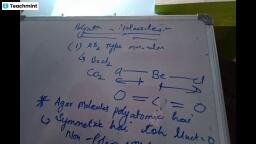 Teachmint
Polyatomic molecules:-
(1) AB₂ type molecules
G BeCl₂
CO₂ Cl — Be — Cl
O = C = O
* Agar molecules polyatomic hai
Symmetric hai toh
Non-Polar